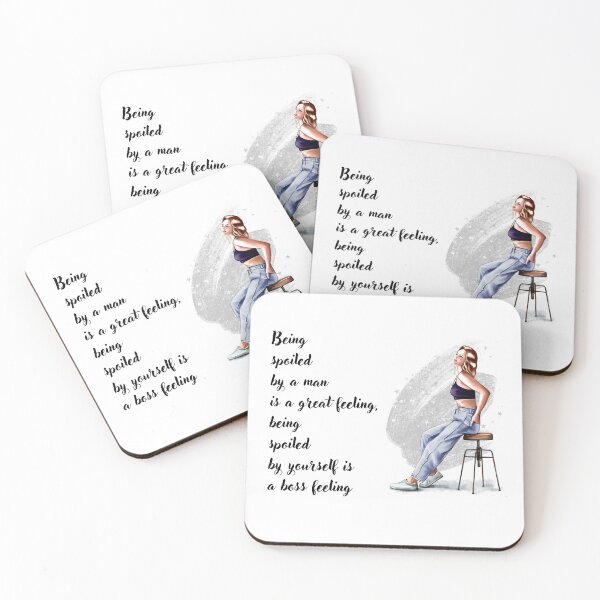 Being
spoiled
by a man
is a great feeling
being
Being
spoiled
by a man
is a great feeling,
being
spoiled
by yourself is
Being
spoiled
by a man
is a great feeling,
being
spoiled
by yourself is
a boss feeling
Being
spoiled
by a man
is a great feeling,
being
spoiled
by yourself is
a boss feeling